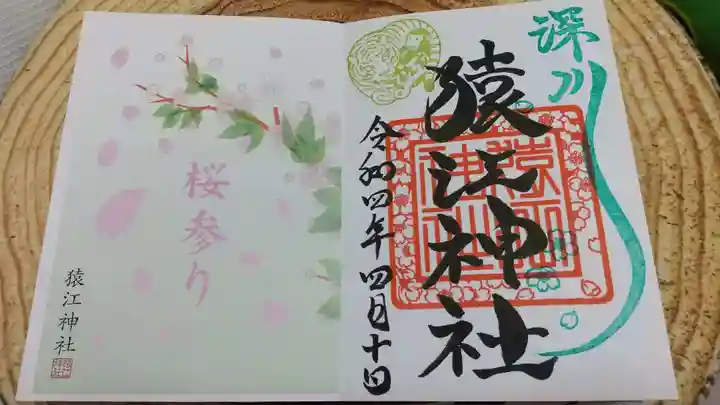 深川
猿江神社
令和四年四月十日
桜参り
猿江神社